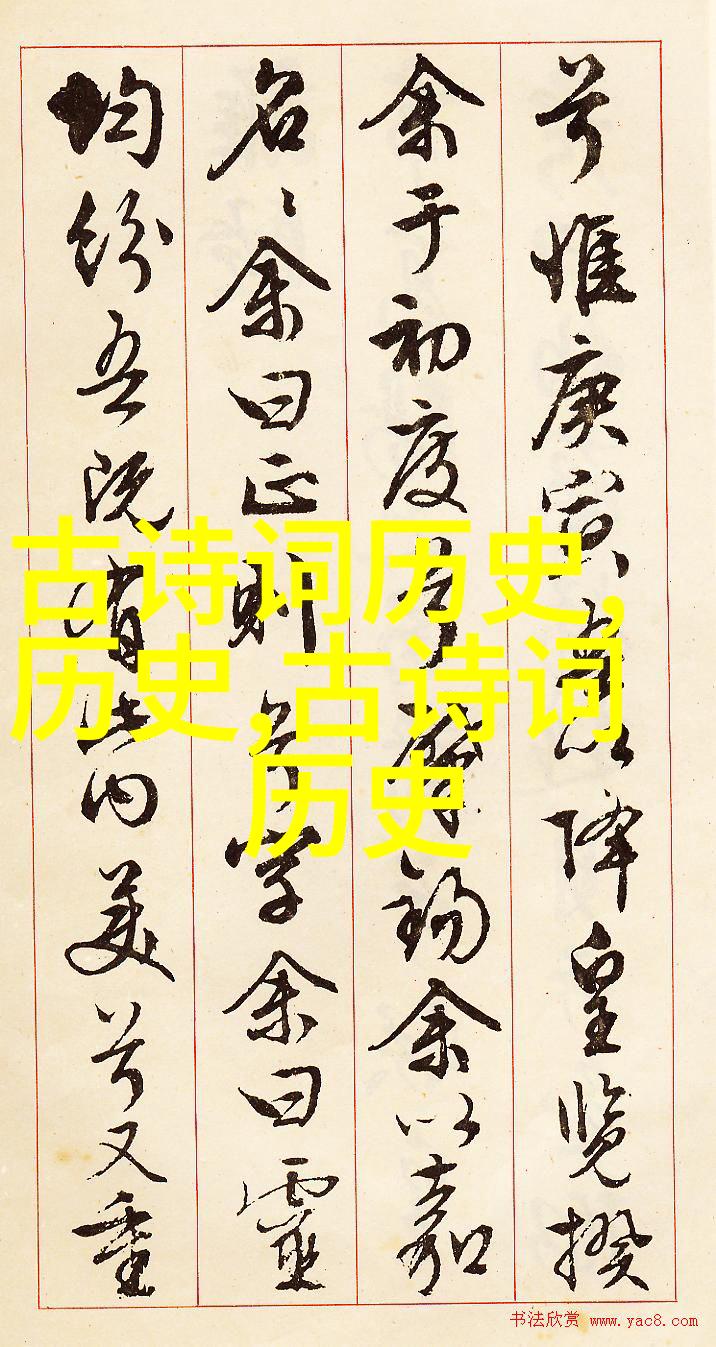 兮惟庚寅吾以降皇览揆
余于初度兮肇锡余以嘉
名〻余曰正则兮字余曰靈
均纷吾既有此内美兮又重
古诗词历史,
历史,古诗词
历史
书法欣赏 www.yac8.com